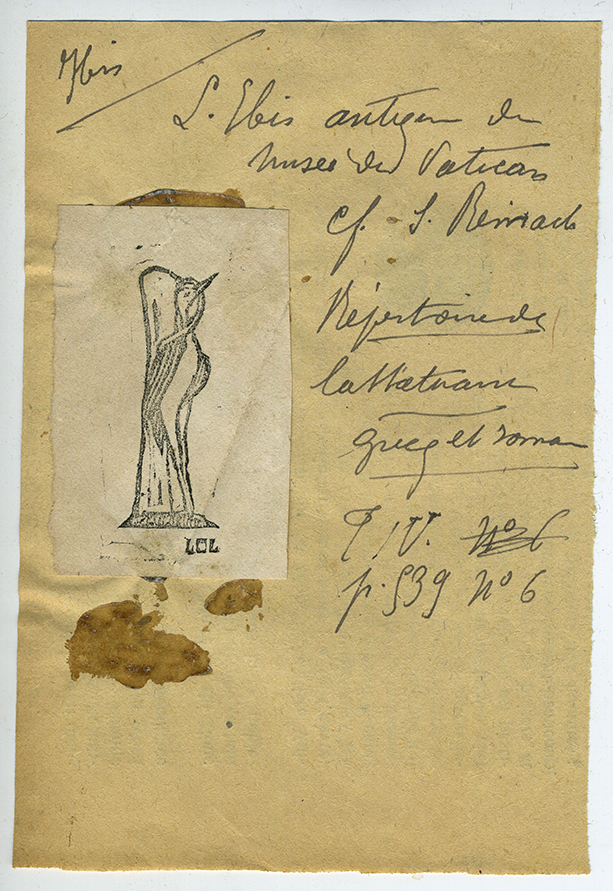 Ibis
L'Ibis antique du
Musée du Vatican
cf. S. Reinach
Répertoire de
la Statuaire
grecq et romain
T. IV. n° 6
p. 539 n° 6
LCL